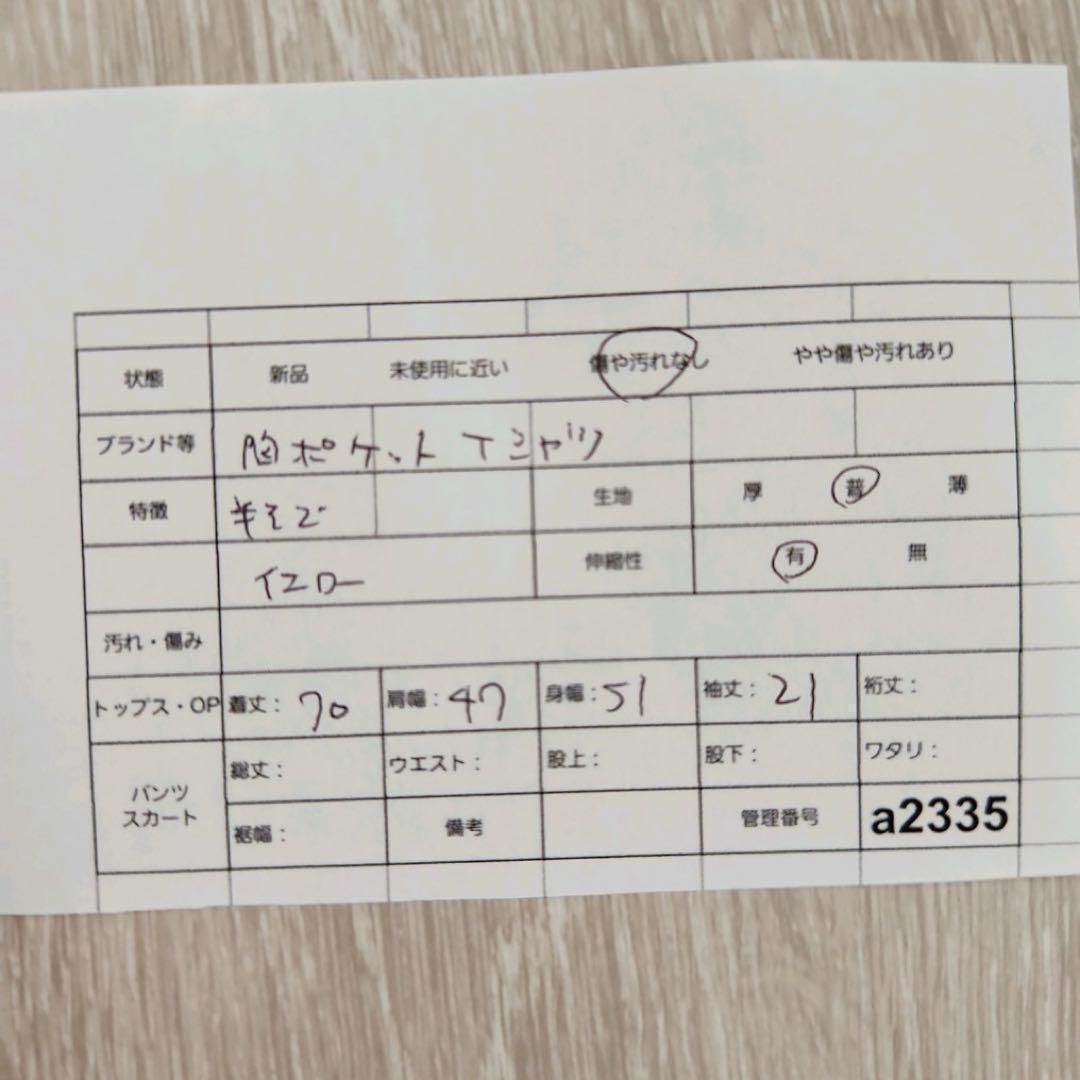 状態 新品 未使用に近い 傷や汚れなし やや傷や汚れあり
ブランド等 胸ポケット Tシャツ
特徴 半そで 生地 厚 普 薄
イエロー 伸縮性 有 無
汚れ・傷み
トップス・OP 着丈: 70 肩幅: 47 身幅: 51 袖丈: 21 裄丈:
パンツ スカート 総丈: ウエスト: 股上: 股下: ワタリ:
裾幅: 備考 管理番号 a2335